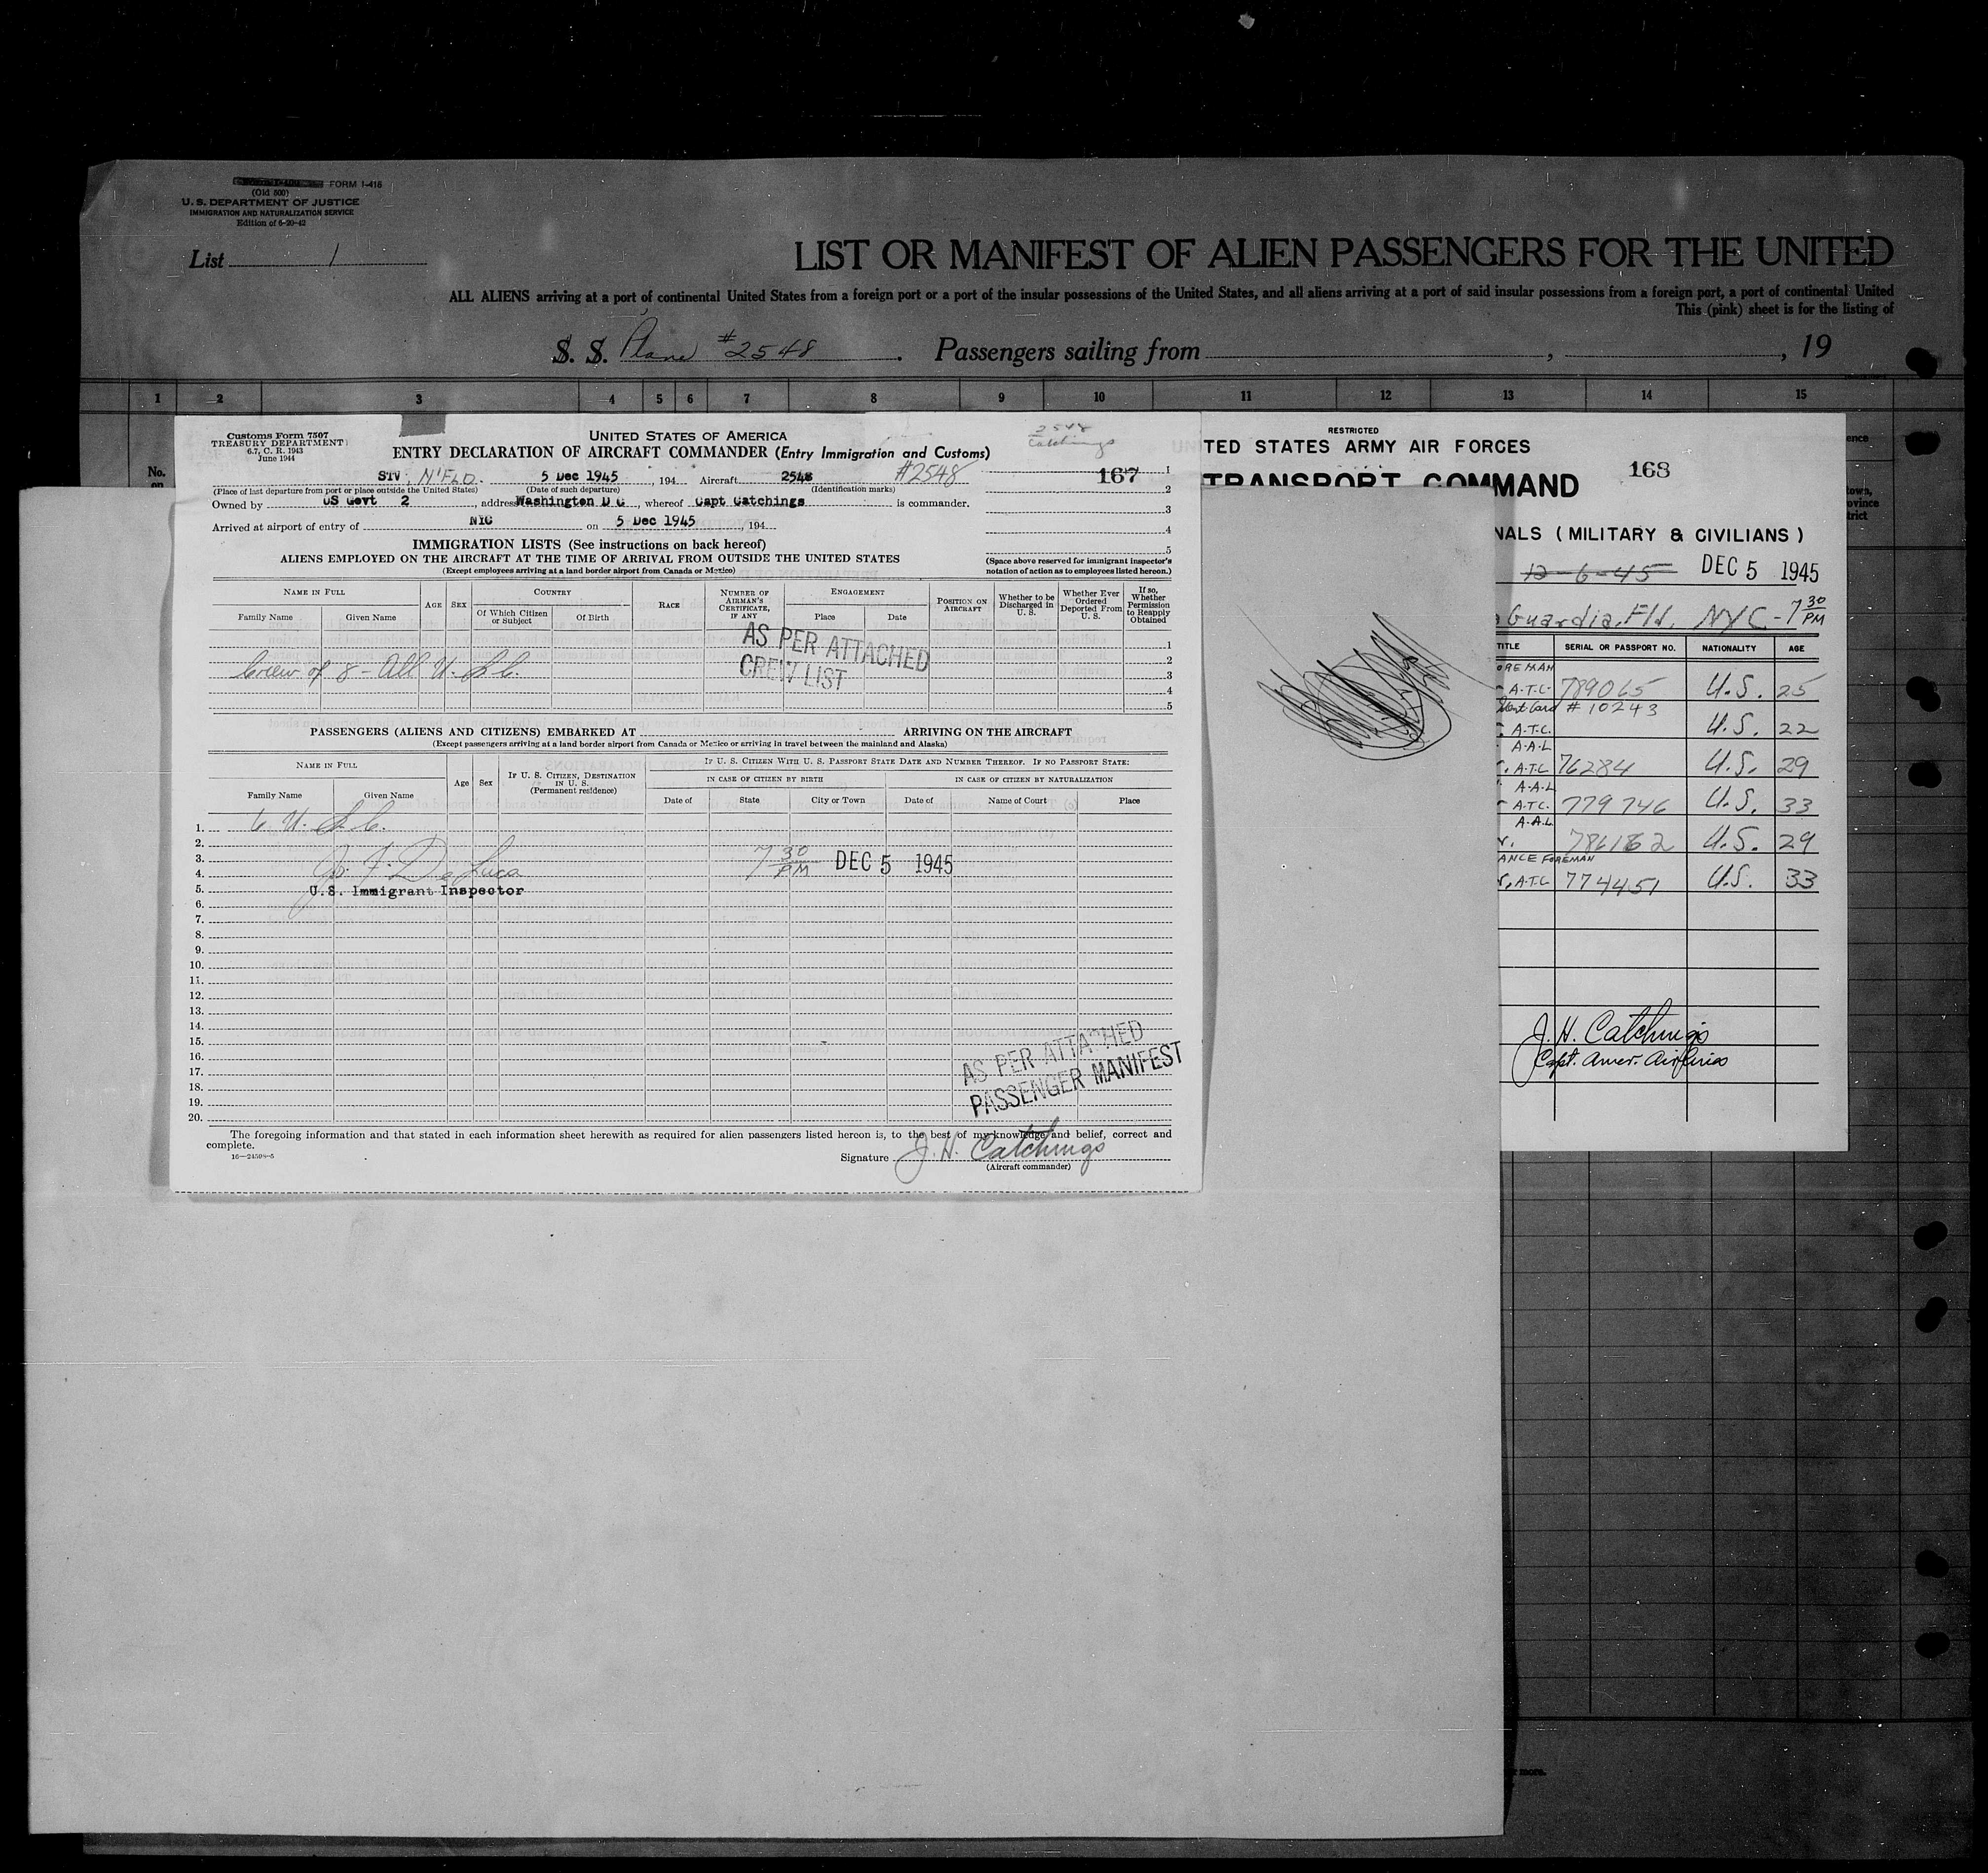 FORM I-415
(Old 500)
U. S. DEPARTMENT OF JUSTICE
IMMIGRATION AND NATURALIZATION SERVICE
Edition of 6-20-42
List 1
LIST OR MANIFEST OF ALIEN PASSENGERS FOR THE UNITED
ALL ALIENS arriving at a port of continental United States from a foreign port or a port of the insular possessions of the United States, and all aliens arriving at a port of said insular possessions from a foreign port, a port of continental United
This (pink) sheet is for the listing of
S. S. Plane #2548 . Passengers sailing from , , 19
1 2 3 4 5 6 7 8 9 10 11 12 13 14 15
No.
on
Customs Form 7507
TREASURY DEPARTMENT
6.7, C. R. 1943
June 1944
UNITED STATES OF AMERICA
ENTRY DECLARATION OF AIRCRAFT COMMANDER (Entry Immigration and Customs)
2548
Catchings
167
STV, N'FLD. 5 Dec 1945, 194 Aircraft 2548 #2548
(Place of last departure from port or place outside the United States) (Date of such departure) (Identification marks)
Owned by US Govt 2, address Washington D C, whereof Capt Catchings is commander.
Arrived at airport of entry of NYC on 5 Dec 1945, 194
1
2
3
4
5
(Space above reserved for immigrant inspector's notation of action as to employees listed hereon.)
IMMIGRATION LISTS (See instructions on back hereof)
ALIENS EMPLOYED ON THE AIRCRAFT AT THE TIME OF ARRIVAL FROM OUTSIDE THE UNITED STATES
(Except employees arriving at a land border airport from Canada or Mexico)
NAME IN FULL
Family Name Given Name
AGE SEX
COUNTRY
Of Which Citizen or Subject Of Birth
RACE
NUMBER OF AIRMAN'S CERTIFICATE, IF ANY
ENGAGEMENT
Place Date
POSITION ON AIRCRAFT
Whether to be Discharged in U. S.
Whether Ever Ordered Deported From U. S.
If so, Whether Permission to Reapply Obtained
AS PER ATTACHED
CREW LIST
Crew of 8 - All U. S. C.
1
2
3
4
5
PASSENGERS (ALIENS AND CITIZENS) EMBARKED AT ARRIVING ON THE AIRCRAFT
(Except passengers arriving at a land border airport from Canada or Mexico or arriving in travel between the mainland and Alaska)
NAME IN FULL
Family Name Given Name
Age Sex
IF U. S. CITIZEN, DESTINATION IN U. S.
(Permanent residence)
IF U. S. CITIZEN WITH U. S. PASSPORT STATE DATE AND NUMBER THEREOF. IF NO PASSPORT STATE:
IN CASE OF CITIZEN BY BIRTH IN CASE OF CITIZEN BY NATURALIZATION
Date of State City or Town Date of Name of Court Place
6 U. S. C.
1.
2.
3. 7 30 PM DEC 5 1945
4. J. F. De Luca
5. U.S. Immigrant Inspector
6.
7.
8.
9.
10.
11.
12.
13.
14.
15.
16.
17.
18.
19.
20.
AS PER ATTACHED
PASSENGER MANIFEST
The foregoing information and that stated in each information sheet herewith as required for alien passengers listed hereon is, to the best of my knowledge and belief, correct and
complete.
16—24598-5
Signature J. H. Catchings
(Aircraft commander)
RESTRICTED
UNITED STATES ARMY AIR FORCES
168
TRANSPORT COMMAND
NALS (MILITARY & CIVILIANS)
12-6-45 DEC 5 1945
Guardia, Fld. NYC - 7 30 PM
TITLE SERIAL OR PASSPORT NO. NATIONALITY AGE
OREMAN
A.T.C. 789065 U.S. 25
Ident Card # 10243
A.T.C. U.S. 22
A.A.L
A.T.C 76284 U.S. 29
A.A.L
A.T.C. 779746 U.S. 33
A.A.L.
786162 U.S. 29
ANCE FOREMAN
A.T.C 774451 U.S. 33
J. H. Catchings
Capt. Amer. Airlines
ence
towns,
ovince
trict
or more.